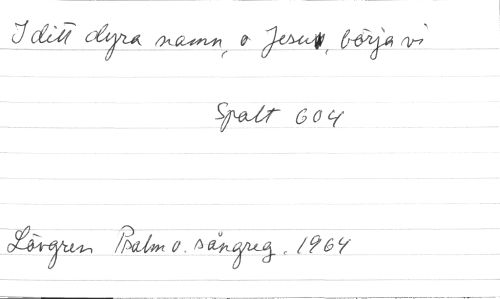 I ditt dyra namn, o Jesu, börja vi
Spalt 604
Lövgren Psalm o. sångreg. 1964